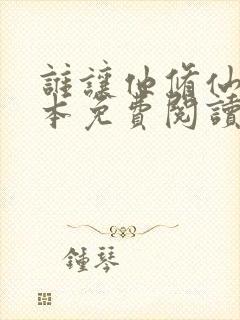 誰讓他脩仙
本免費閱讀
鍾琴